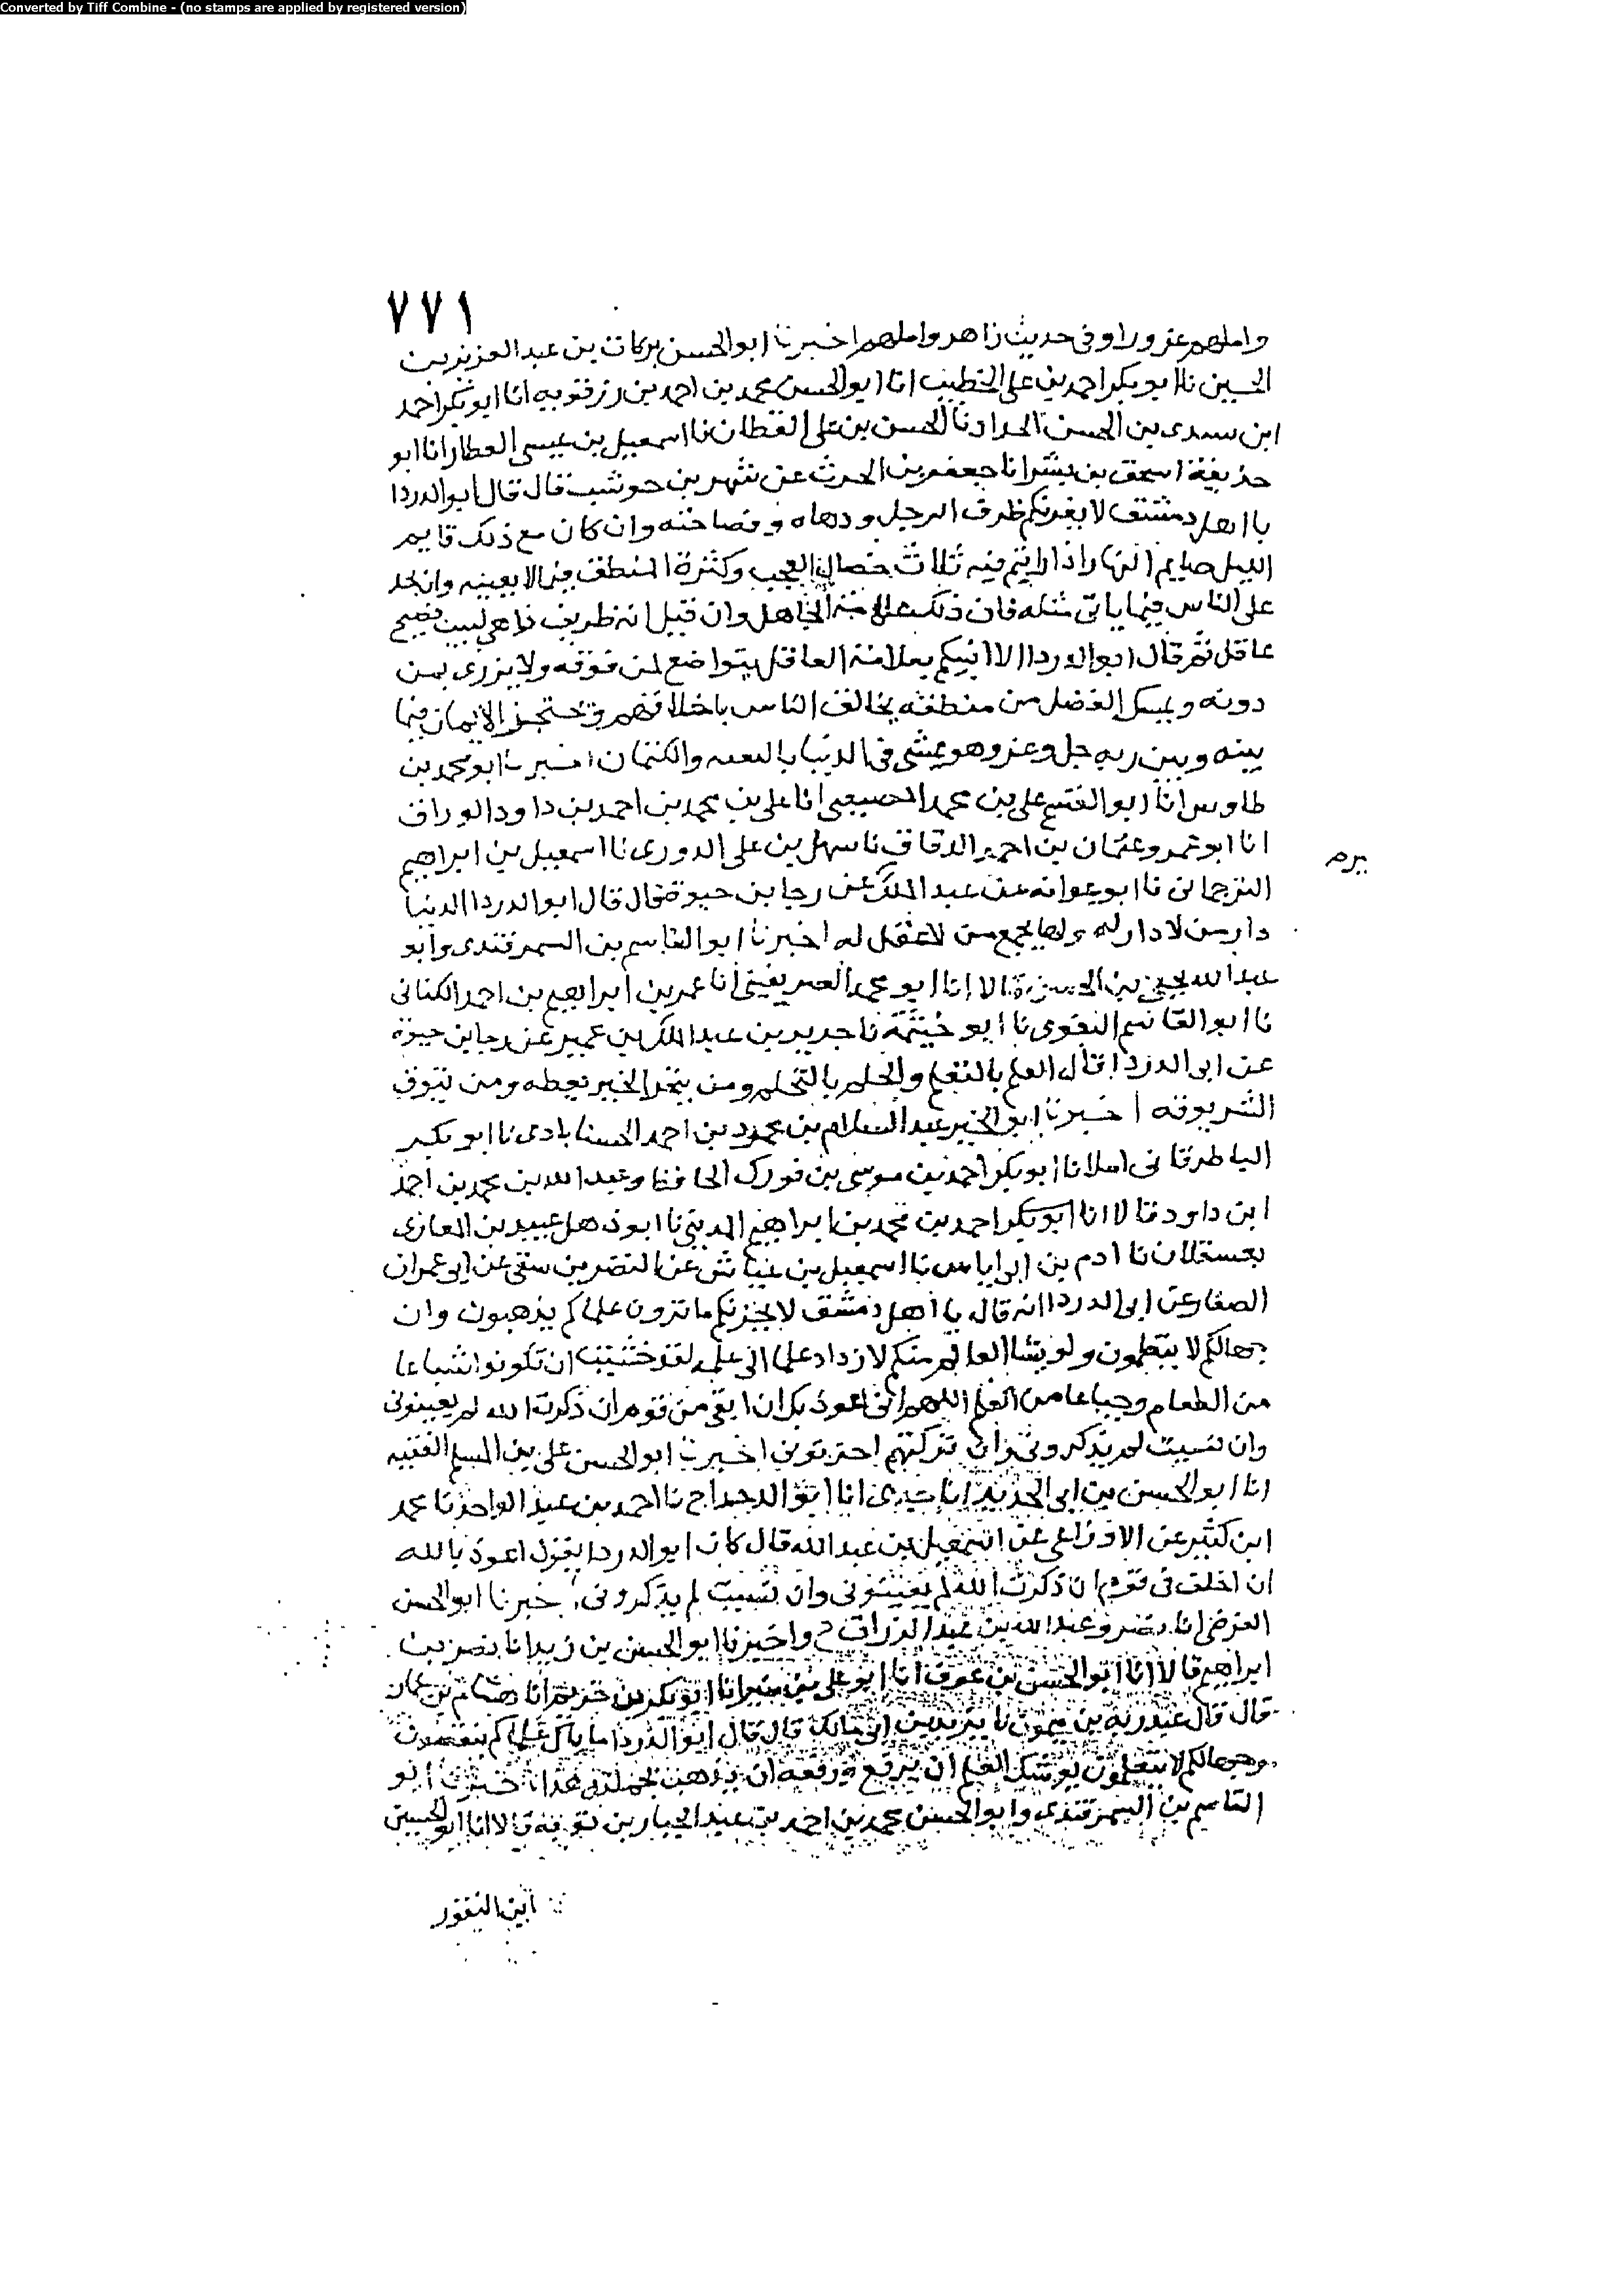 Converted by Tiff Combine - (no stamps are applied by registered version)
٧٧١
واملهم غرورا وفى حديث زاهر واملهم اخبرنا ابو الحسن بركات بن عبد العزيز بن
الحسين نا ابو بكر احمد بن على الخطيب انا ابو الحسن محمد بن احمد بن رزقويه انا ابو بكر احمد
ابن سندى بن الحسن الحداد نا الحسن بن على القطان نا اسمعيل بن عيسى العطار انا ابو
حذيفة اسحق بن بشر انا جعفر بن الحرث عن شهر بن حوشب قال قال ابو الدردا
يا اهل دمشق لا يغرنكم ظرف الرجل ودهاه وفصاحته وان كان مع ذلك قايم
الليل صايم النهار اذا رايتم فيه ثلاث خصال العجب وكثرة المنطق فيما لا يعينه وان يجد
على الناس فيما ياتى مثله فان ذلك علامة الجاهل وان قيل انه ظريف داهى لبيب فصيح
عاقل ثم قال ابو الدردا الا انبيكم بعلامة العاقل يتواضع لمن فوقه ولا يزرى بمن
دونه ويمسك الفضل من منطقه يخالق الناس باخلاقهم ويحتجز الايمان فيما
بينه وبين ربه جل وعز وهو يمشى فى الدنيا بالتقيه والكتمان اخبرنا ابو محمد بن
طاوس انا ابو الفتح على بن محمد المصيصى انا على بن محمد بن احمد بن داود الوراق
انا ابو عمرو عثمان بن احمد الدقاق نا سهل بن على الدورى نا اسمعيل بن ابراهيم
الترجمانى نا ابو عوانه عن عبد الملك عن رجا بن حيوة قال قال ابو الدردا الدنيا
دار من لا دار له ولها يجمع من لا عقل له اخبرنا ابو القاسم بن السمرقندى وابو
عبد الله يحيى بن الحسن قالا انا ابو محمد الصريفينى انا عمر بن ابراهيم بن احمد الكتانى
نا ابو القاسم البغوى نا ابو خيثمة نا جرير بن عبد الملك بن عمير عن رجا بن حيوة
عن ابى الدردا قال العلم بالتعلم والحلم بالتحلم ومن يتحر الخير يعطه ومن يتوق
الشر يوقه اخبرنا ابو الخير عبد السلام بن محمود بن احمد الحسناباذى نا ابو بكر
الباطرقانى املا نا ابو بكر احمد بن موسى بن فورك الحافظ وعبد الله بن محمد بن احمد
ابن داود قالا انا ابو بكر احمد بن محمد بن ابراهيم المدينى نا ابو ذهل عبيد بن الغازى
بعسقلان نا ادم بن ابى اياس نا اسمعيل بن عياش عن النضر بن شفى عن ابى عمران
الصفار عن ابى الدردا انه قال يا اهل دمشق لا يحزنكم ما ترون علماكم يذهبون وان
جهالكم لا يتعلمون ولو يشا العالم منكم لازداد علما الى علمه لقد خشيت ان تكونوا شباعا
من الطعام وجياعا من العلم اللهم انى اعوذ بك ان ابقى من قوم ان ذكرت الله لم يعينونى
وان نسيت لم يذكرونى وان تركتهم احزنونى اخبرنا ابو الحسن على بن المسلم الفقيه
انا ابو الحسن بن ابى الحديد انا جدى انا ابو الدحداح نا احمد بن عبد الواحد نا محمد
ابن كثير عن الاوزاعى عن اسمعيل بن عبد الله قال كان ابو الدردا يقول اعوذ بالله
ان اخلف فى قوم ان ذكرت الله لم يعينونى وان نسيت لم يذكرونى اخبرنا ابو الحسن
الفرضى انا نصر وعبد الله بن عبد الرزاق ح واخبرنا ابو الحسن بن زيد انا نصر بن
ابراهيم قالا انا ابو الحسن بن عوف انا ابو على بن منير انا ابو بكر بن خريم انا هشام بن عمار
قال قال عبد ربه بن ميمون نا يزيد بن ابى مالك قال قال ابو الدردا ما بال علماكم ينقصون
وجهالكم لا يتعلمون يوشك العلم ان يرفع ورفعه ان يذهب بحملته هذا اخبرنا ابو
القاسم بن السمرقندى وابو الحسن محمد بن احمد بن عبد الجبار بن توبة قالا انا ابو الحسين
ابن النقور